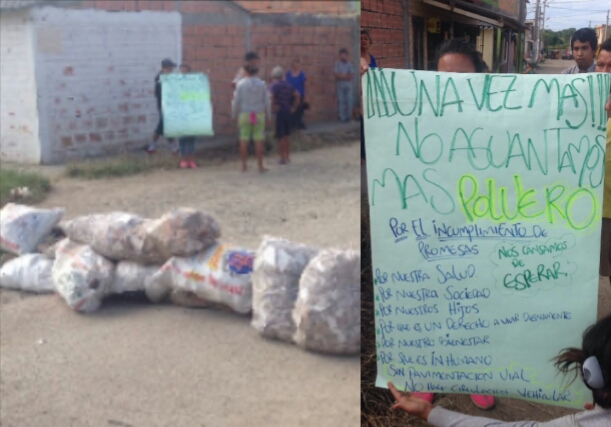 ¡¡¡UNA VEZ MAS!!!
NO AGUANTAMOS
MAS POLVERO
POR EL INCUMPLIMIENTO DE
PROMESAS
NOS CANSAMOS
DE
ESPERAR
POR NUESTRA SALUD
POR NUESTRA SOCIEDAD
POR NUESTROS HIJOS
POR QUE ES UN DERECHO A VIVIR DIGNAMENTE
POR NUESTRO BIENESTAR
POR QUE ES INHUMANO
SIN PAVIMENTACION VIAL
NO HAY CIRCULACION VEHICULAR